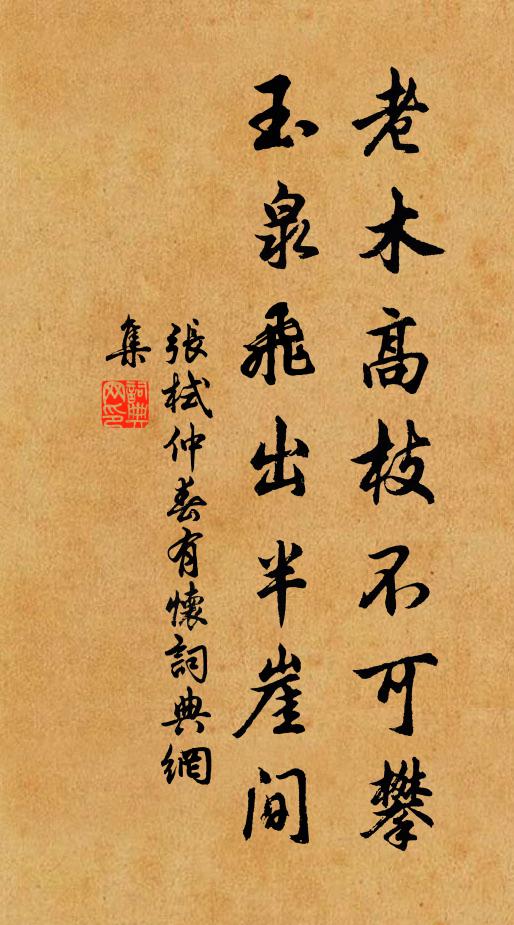 老木高枝不可攀
玉泉飛出半崖间
張栻仲春有懷詞典網
集
詞典
网印